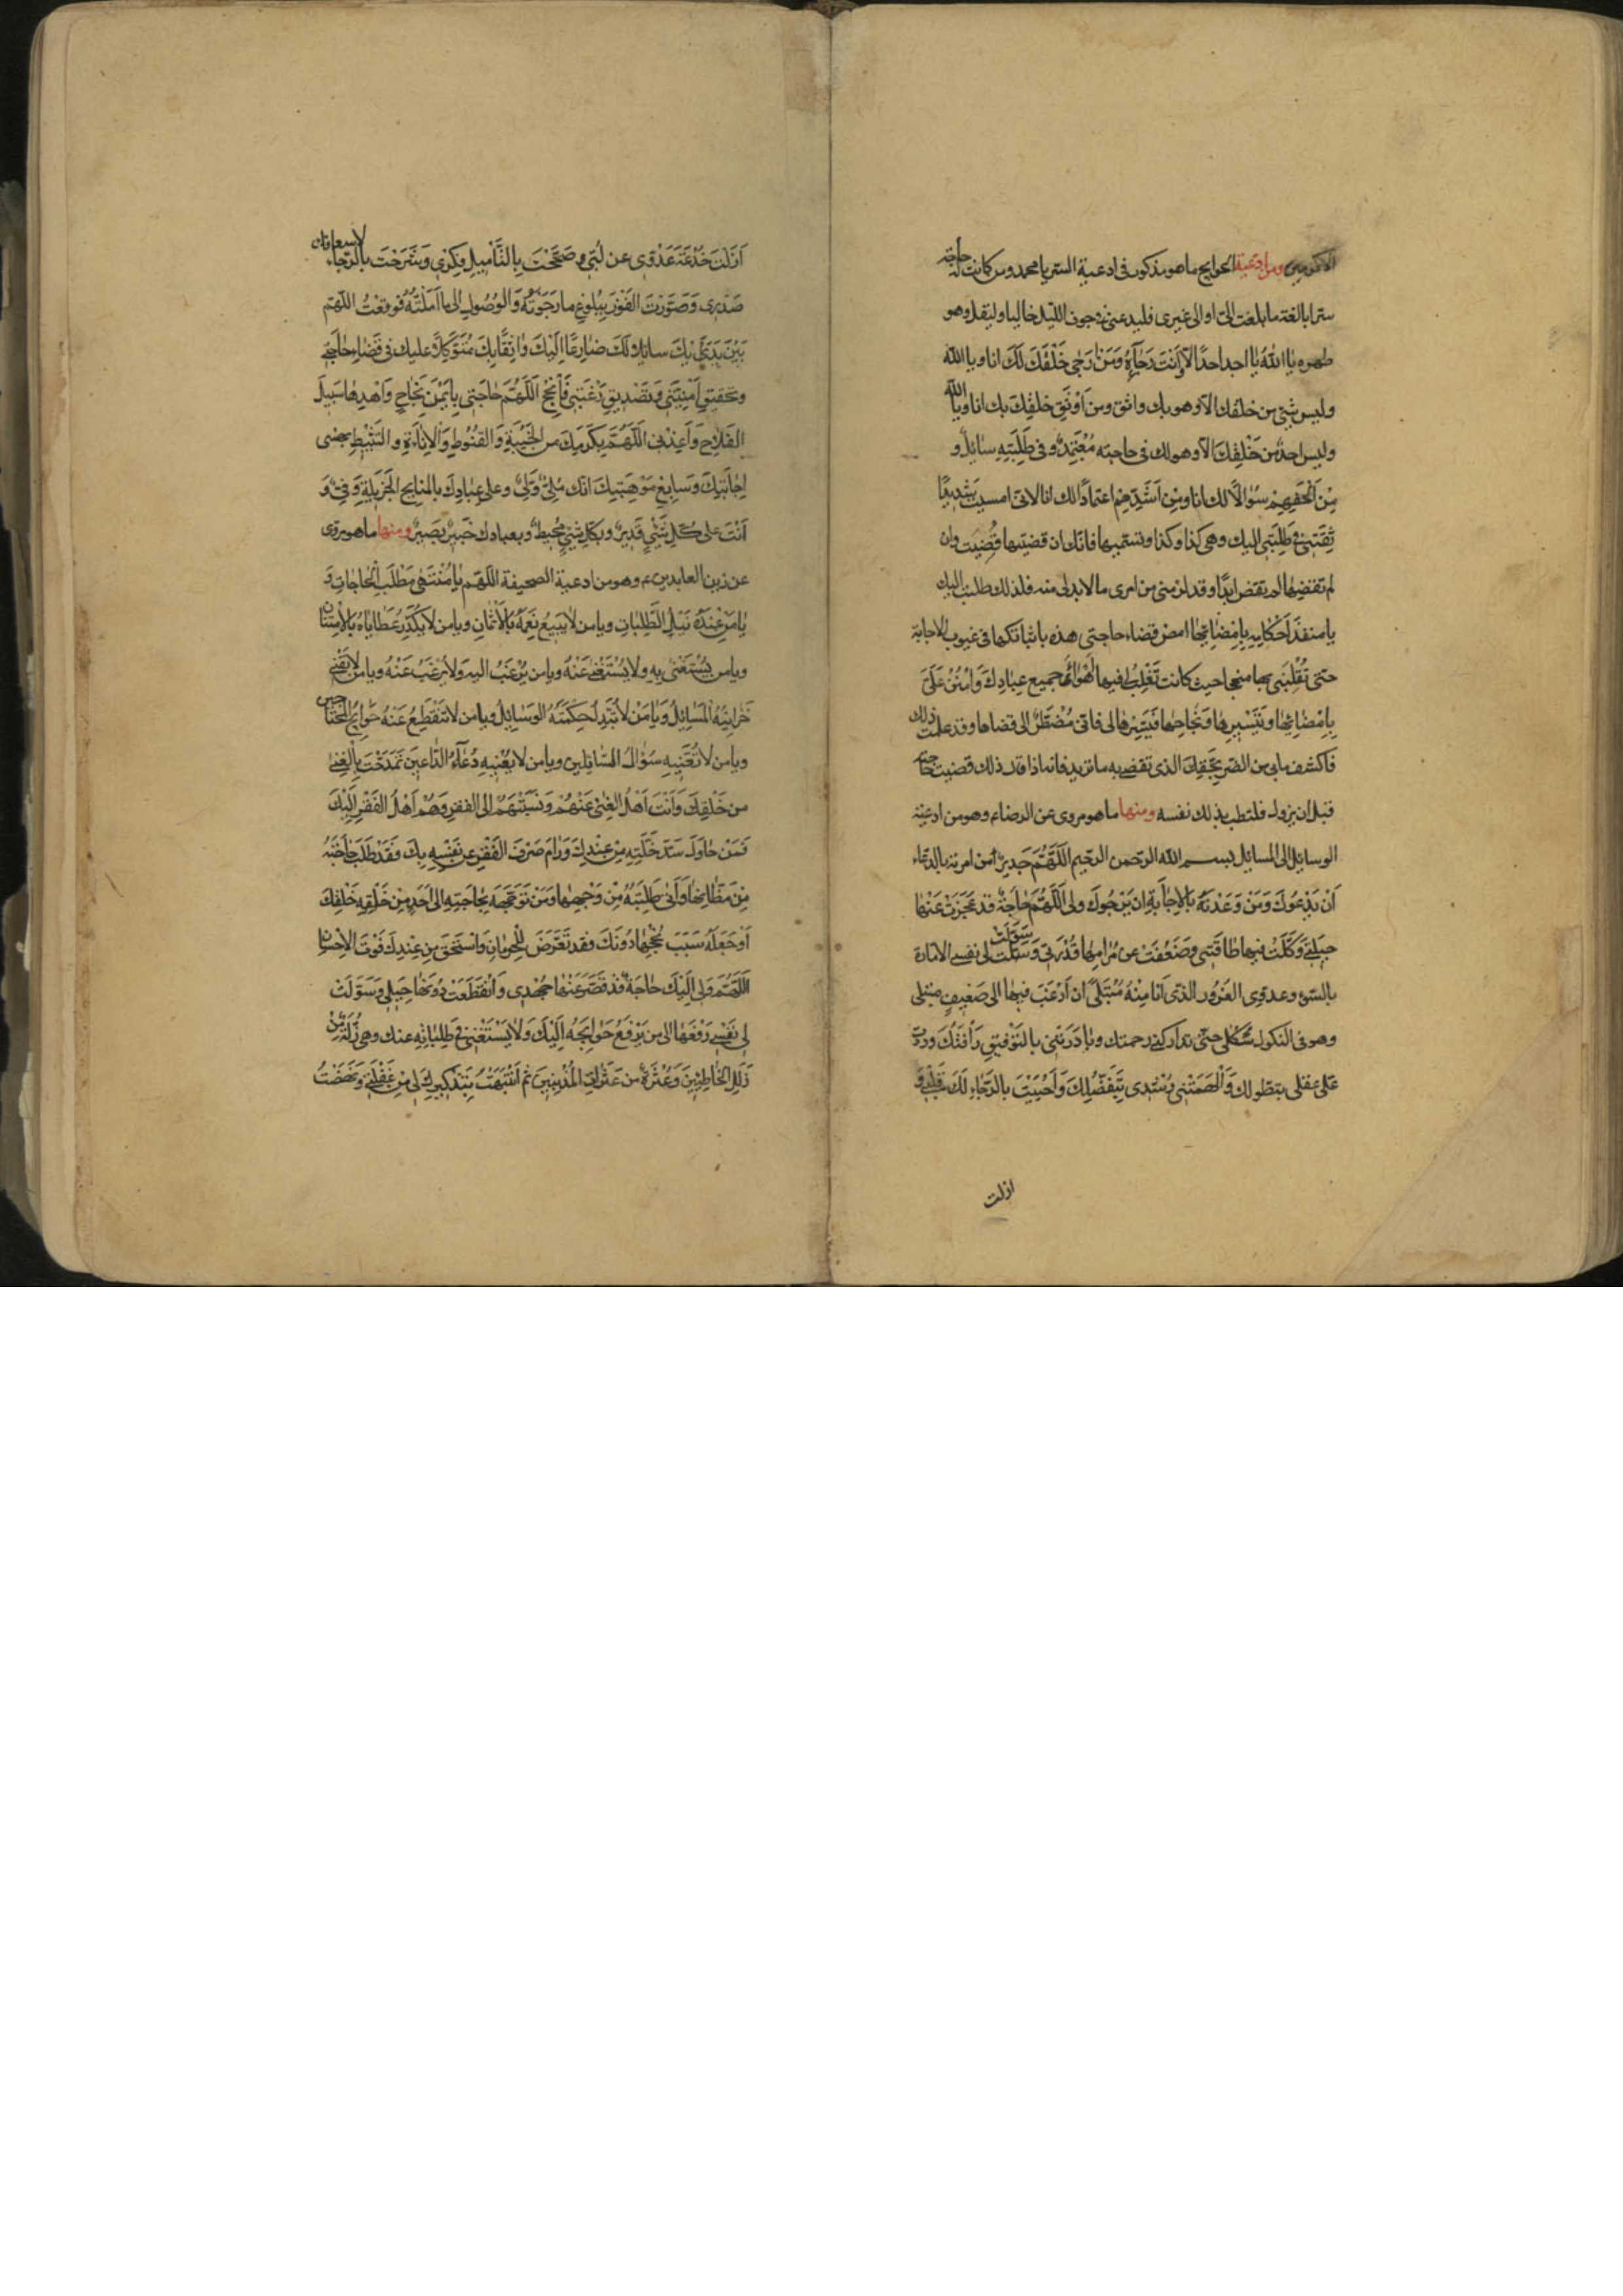 الاكرمين ومن ادعية الحوايج ما هو مذكور في ادعية السر يا محمد ومن كانت له حاجة
سرا بالغة ما بلغت الىّ او الى غيرى فليدعنى في جوف الليل خاليا وليقل وهو
طهر يا اللهُ يا احد احدًا الّا وَاَنتَ رَجٰآؤهُ وَمَن اَرجٰى خَلْقِكَ لَكَ انا ويا الله
وليس شئ من خلقك الا وهو بك واثق ومن اَوْثَقِ خلقِكَ بك انا ويا الله
وليس احدٌ من خَلْقِكَ الا وهو لك في حاجته مُعْتَمِدٌ وفي طَلِبَتِهِ سٰائِلٌ و
مِنْ اَلحَفِهِمْ سُؤالًا لك انا ومِن اَشَدِّهِمْ اعتمادًا لك انا لانى امسيت شَديدًا
ثِقَتى فى طَلِبَتى اليك وهى كذا وكذا وتسميها فانك ان قضيتها قُضِيَت وان
لم تقضِها لم تقض ابدًا وقد لزمنى من امرى ما لا بد لى منه فلذلك طلبت اليك
يا منفذَ اَحْكامِهِ بِاِمْضٰائِهٰا امض قضاء حاجتى هذه باثباتكها فى غيوب الاجابة
حتى تُقْلِبَنى بها منجحا حيث كانت تَغْلِبُ لى فيها اَهْوٰاءُ جميع عِبٰادِكَ وَامْنُنْ عَلَىَّ
بِاِمْضٰائِهٰا وَتَيْسيرِهٰا وَنَجٰاحِهٰا فَيَسِّرْهٰا لى فانى مُضْطَرٌّ الى قضاءها وقد علمت ذلك
فاكشف ما بى من الضر بِحَقِّكَ الذى تقضى به ما تريد فانه اذا قال ذلك قضيت حاجته
قبل ان يزول فلتطب بذلك نفسه ومنها ما هو مروى عن الرضاء وهو من ادعية
الوسائل الى المسائل بسم الله الرّحمن الرّحيم اَللّهُمَّ جَديرٌ من امرته بالدعاء
اَنْ يَدْعُوَكَ وَمَنْ وَعَدْتَهُ بِالاِجٰابَةِ ان يَرْجُوَكَ ولى اَللّهُمَّ حٰاجَةٌ قد عَجَزَتْ عَنْهٰا
حيلَتى وَكَلَّتْ فيها طٰاقَتى وضَعُفَتْ عن مَرامِهٰا قُدْرَتى وَسَوَّلَتْ لى نفسى الامّارة
بالسّوء وعدوى الغَرُور الذى اَنا مِنْهُ مُبْتَلىً ان اَرْغَبَ فيهٰا الى ضَعيفٍ مثلى
وهو فى النكول شَكْلى حتّى تداركنى رحمتك وبٰادَرَتْنى بالتَوْفيقِ رَأفَتُكَ ورددت
عَلى عقلى بتطولك وَاَلْهَمْتَنى رُشْدى بِتَفَضُّلِكَ وَاَحْيَيْتَ بالرَّجٰاءِ لَكَ قَلْبى وَ
ازلت
اَزَلْتَ خُدْعَةَ عَدُوّى عن لُبّى وصَحَّحْتَ بِالتَّأميلِ فِكْرى وَشَرَحْتَ بالرّجاء لاسعافك
صَدْرى وَصَوَّرْتَ الفَوْزَ بِبُلُوغِ ما رَجَوْتُهُ وَالوُصُولِ الى ما اَمَّلْتُهُ فَوقفْتُ اللّهم
بَيْنَ يَدَيْكَ سائِلًا لَكَ ضٰارِعًا اِلَيْكَ وٰاثِقًا بِكَ مُتَوَكِّلًا عليك فى قَضٰاءِ حٰاجَتى
وتحقيقِ اُمْنِيَّتى وَتَصْديقِ رَغْبَتى فَاَنْجِحْ اَللّهُمَّ حٰاجَتى بِاَيْمَنِ نَجٰاحٍ وَاهْدِهٰا سَبيلَ
الفَلاحِ وَاَعِذْنى اَللّهُمَّ بِكَرَمِكَ من الخَيْبَةِ وَالقُنُوطِ وَالاِنٰاءَةِ والتَثْبيطِ بهنى
اِجٰابَتِكَ وَسٰابِغِ مَوْهِبَتِكَ انّك مَلِىٌّ وَلِىٌّ وعلى عِبٰادِكَ بالمنايح الجَزيلَةِ وَفىٌّ وَ
اَنْتَ على كُلِّ شَىْءٍ قَديرٌ وبكلّ شىْءٍ مُحيطٌ وبعبادك خَبيرٌ بَصيرٌ ومنها ما هو مروى
عن زين العابدين ع وهو من ادعية الصحيفة اللّهمّ يٰا مُنْتَهٰى مَطْلَبِ الحٰاجاتِ وَ
يٰا مَن عِنْدَهُ نَيْلُ الطَّلِبٰاتِ ويا من لايَبيعُ نِعَمَهُ بِالاَثْمٰانِ ويا من لا يُكَدِّرُ عَطٰايٰاهُ بالاِمْتِنان
ويا من يُسْتَغْنىٰ بِهِ ولا يُسْتَغْنىٰ عَنْهُ ويا من يُرْغَبُ اليه وَلا يُرْغَبُ عَنْهُ ويا من لا تُفْنى
خَزٰائِنَهُ المَسٰائِلُ وَيٰا مَنْ لا تُبَدِّلُ حِكْمَتَهُ الوَسٰائِلُ ويا من لا تَنْقَطِعُ عَنْهُ حَوٰائِجُ المُحْتٰاجين
ويا من لا تُعَنّيهِ سُؤالُ السّائلين ويا من لا يُعْنيهِ دُعٰاءُ الدّاعينَ تَمَدَّحْتَ بِالغِنى
من خَلْقِكَ وَاَنْتَ اَهْلُ الغِنى عَنْهُمْ وَنَسَبْتَهُمْ اِلى الفقرِ وَهُمْ اَهْلُ الفَقْرِ اِلَيْكَ
فَمَنْ حٰاوَلَ سَدَّ خَلَّتِهِ مِنْ عِنْدِكَ وَرٰامَ صَرْفَ الفَقْرِ عن نَفْسِهِ بِكَ فَقَدْ طَلَبَ حٰاجَتَهُ
مِنْ مَظٰانِّهٰا وَاَتىٰ طَلِبَتَهُ مِنْ وَجْهِهٰا وَمَنْ تَوَجَّهَ بِحٰاجَتِهِ الى اَحَدٍ مِنْ خَلْقِهِ خَلْقِكَ
اَوْ جَعَلَهُ سَبَبَ نُجْحِهٰا دُونَكَ فقد تَعَرَّضَ لِلحِرمٰانِ وَاسْتَحَقَّ مِن عِنْدِكَ فَوْتَ الاِحْسٰانِ
اَللّهُمَّ وَلى اِلَيْكَ حٰاجَةٌ قَدْ قَصَّرَ عَنْهٰا جُهْدى وَانْقَطَعَتْ دُونَهٰا حِيَلى وَسَوَّلَتْ
لى نَفْسى رَفْعَهٰا الى من يَرْفَعُ حَوٰائِجَهُ اِلَيْكَ وَلا يَسْتَغْنى فى طَلِبٰاتِهِ عنك وهى زَلَّةٌ مِنْ
زَلَلِ الخٰاطِئينَ وَعَثْرَةٌ من عَثَرٰاتِ المُذْنِبينَ ثم انْتَبَهْتُ بِتَذْكيرِكَ لى مِنْ غَفْلَتى وَنَهَضْتُ